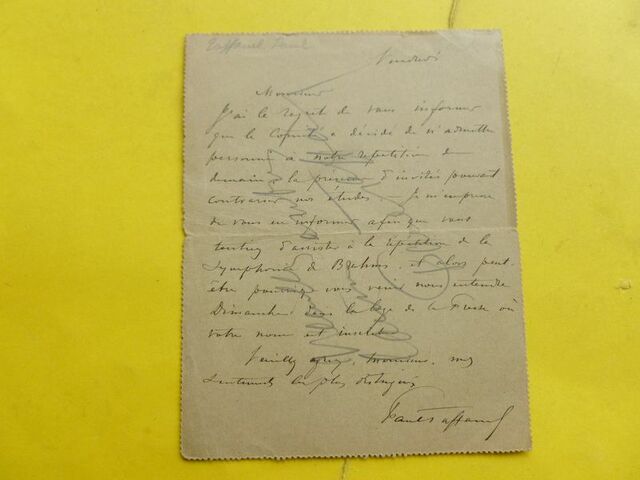 Taffanel Paul
Vendredi
Monsieur
J'ai le regret de vous informer
que le Comité a décidé de n'admettre
personne à notre répétition de
demain, la présence d'invités pouvant
contrarier nos études. Je m'empresse
de vous en informer afin que vous
d'assister à la répétition de la
Symphonie de Brahms, et alors peut-
être pourriez vous venir nous entendre
Dimanche dans la loge de la Presse où
votre nom est inscrit.
Veuillez agréer, Monsieur, mes
sentiments les plus distingués
Paul Taffanel